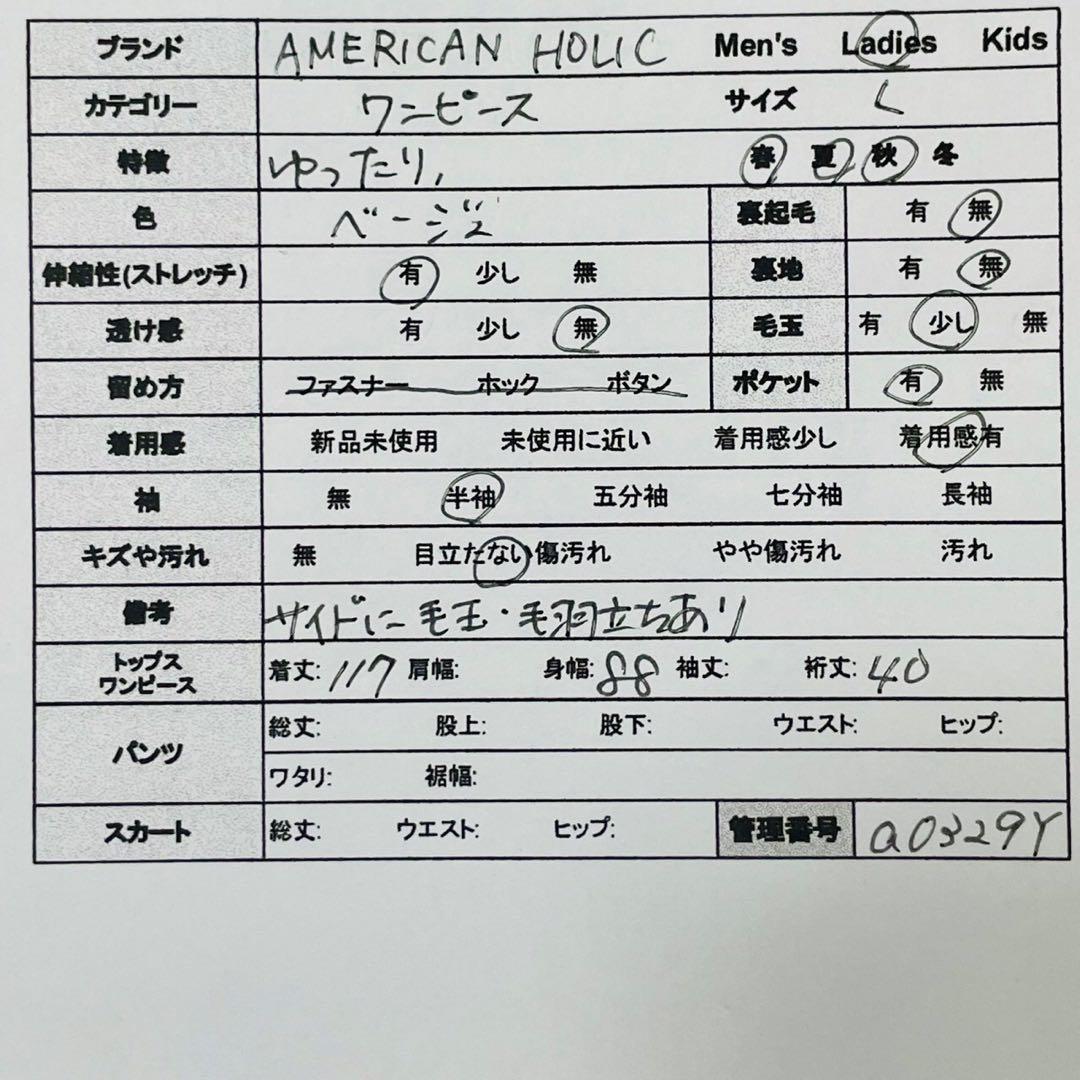 ブランド AMERICAN HOLIC Men's Ladies Kids
カテゴリー ワンピース サイズ L
特徴 ゆったり, 春 夏 秋 冬
色 ベージュ 裏起毛 有 無
伸縮性(ストレッチ) 有 少し 無 裏地 有 無
透け感 有 少し 無 毛玉 有 少し 無
留め方 ファスナー ホック ボタン ポケット 有 無
着用感 新品未使用 未使用に近い 着用感少し 着用感有
袖 無 半袖 五分袖 七分袖 長袖
キズや汚れ 無 目立たない傷汚れ やや傷汚れ 汚れ
備考 サイドに毛玉・毛羽立ちあり
トップス
ワンピース 着丈: 117 肩幅: 身幅: 88 袖丈: 裄丈: 40
パンツ 総丈: 股上: 股下: ウエスト: ヒップ:
ワタリ: 裾幅:
スカート 総丈: ウエスト: ヒップ: 管理番号 a0329Y